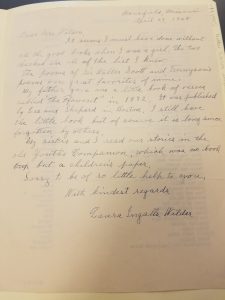 Mansfield, Missouri
April 27, 1948
Dear Mrs. 
It seems I must have done without
much good books when I was a girl. The two
 are all of the list I knew.
The poems of Sir Walter Scott and Tennyson's
poems were great favorites of mine.
My father gave me a little book of verse
called "The Floweret" in 1872. It was published
by Lee and Shepard in Boston. I still have
the little book but of course it is long since
forgotten by others.
My sisters and I read our stories in the
old Youth's Companion, which was no book
 but a children's paper.
Sorry to be of so little help to you,
With kindest regards
Laura Ingalls Wilder